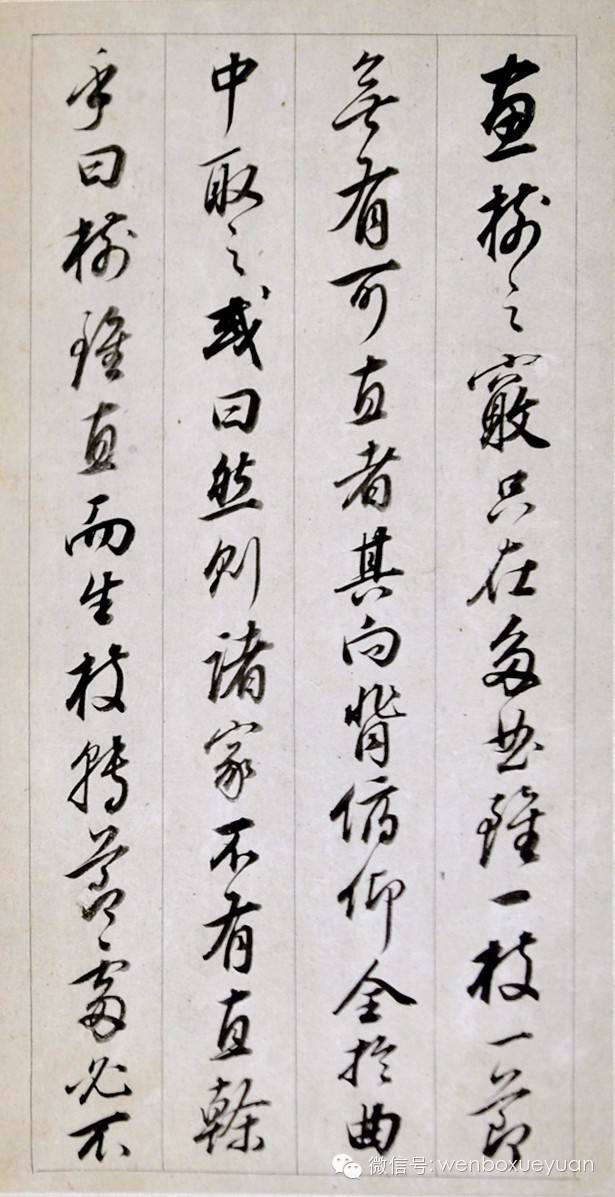 畫樹之竅只在多曲雖一枝一節
無有可直者其向背俯仰全於曲
中取之或曰然則諸家不有直幹
乎曰樹雖直而生枝轉節處必不
微信号: wenboxueyuan